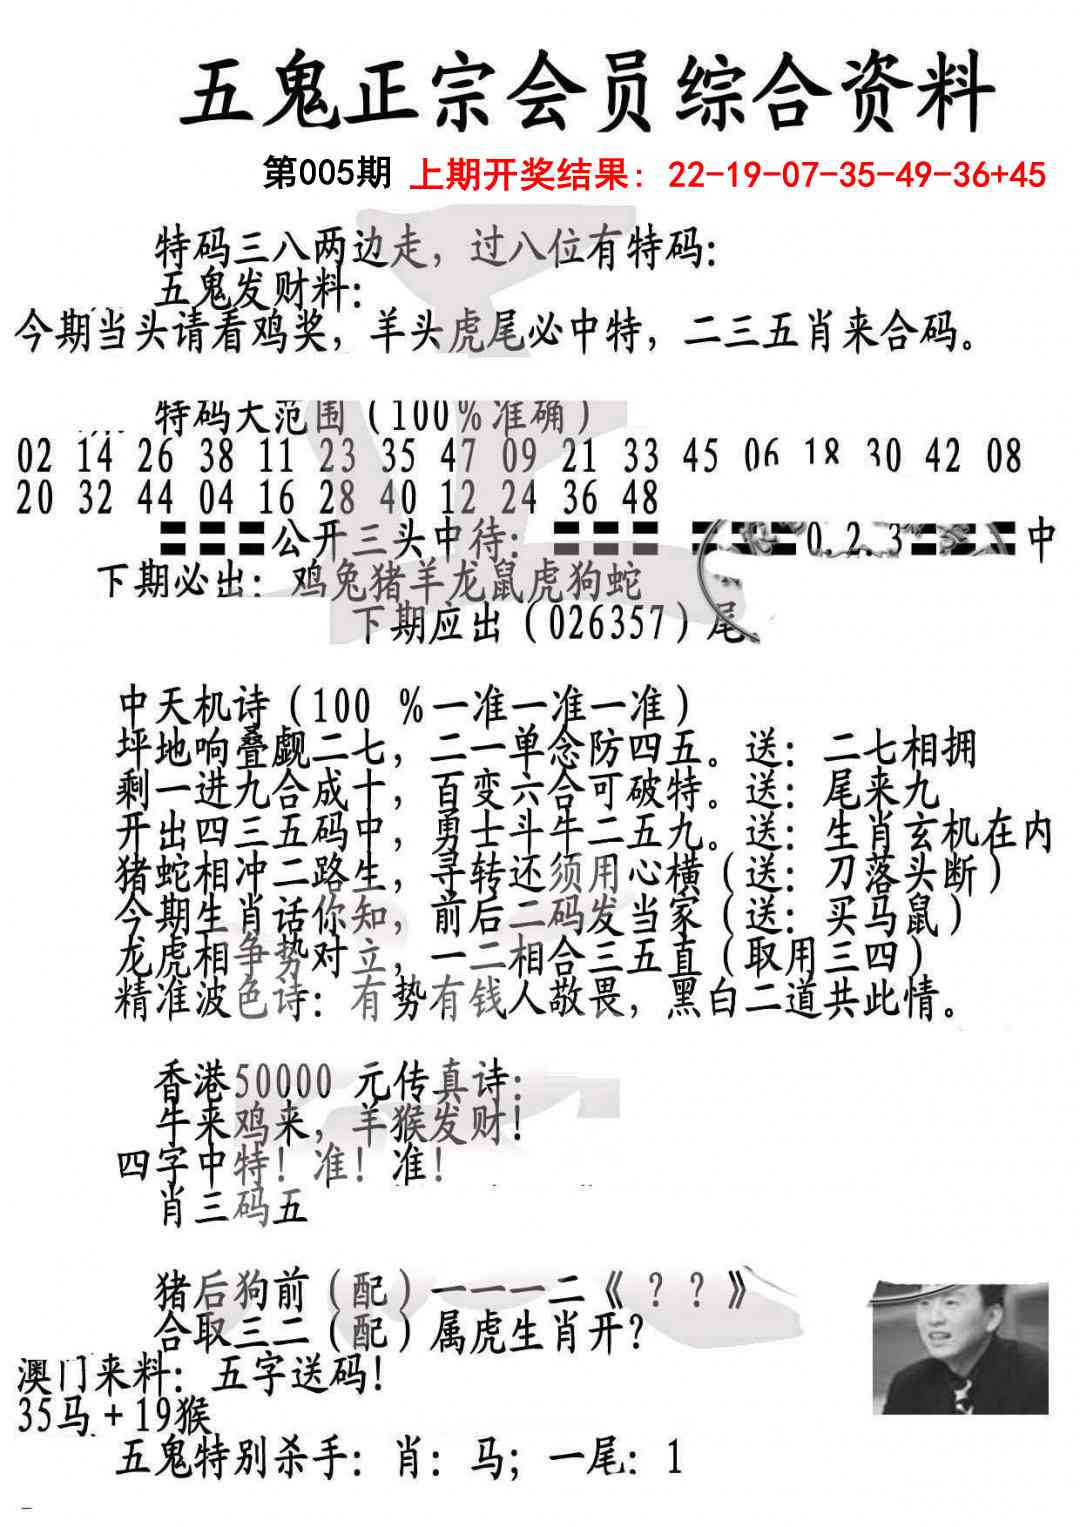 五鬼正宗会员综合资料
第005期 上期开奖结果: 22-19-07-35-49-36+45
特码三八两边走，过八位有特码:
五鬼发财料:
今期当头请看鸡奖，羊头虎尾必中特，二三五肖来合码。
特码大范围（100%准确）
02 14 26 38 11 23 35 47 09 21 33 45 06 18 30 42 08
20 32 44 04 16 28 40 12 24 36 48
〓〓〓公开三头中待: 〓〓〓 〓〓〓0.2.3〓〓〓中
下期必出: 鸡兔猪羊龙鼠虎狗蛇
下期应出（026357）尾
中天机诗（100 %一准一准一准）
坪地响叠觑二七，二一单念防四五。送: 二七相拥
剩一进九合成十，百变六合可破特。送: 尾来九
开出四三五码中，勇士斗牛二五九。送: 生肖玄机在内
猪蛇相冲二路生，寻转还须用心横（送: 刀落头断）
今期生肖话你知，前后二码发当家（送: 买马鼠）
龙虎相争势对立，一二相合三五直（取用三四）
精准波色诗: 有势有钱人敬畏，黑白二道共此情。
香港50000 元传真诗:
牛来鸡来，羊猴发财!
四字中特! 准! 准!
肖三码五
猪后狗前（配）一一一二《 ? ? 》
合取三二（配）属虎生肖开?
澳门来料: 五字送码!
35马+19猴
五鬼特别杀手: 肖: 马; 一尾: 1